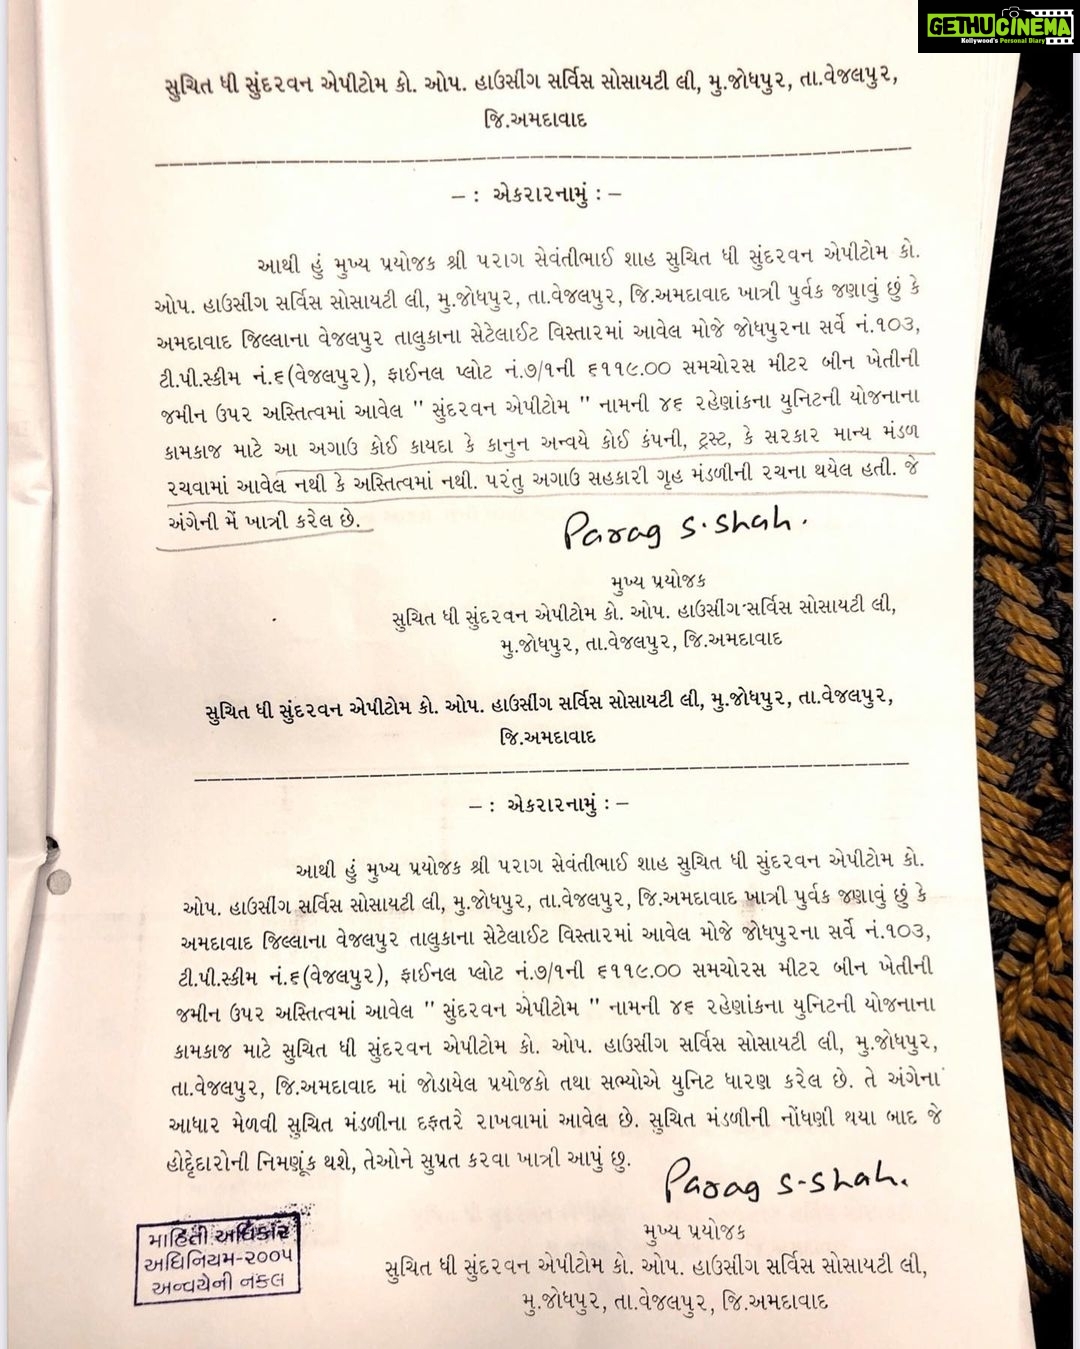 GETHUCINEMA
Kollywood's Personal Diary
સુચિત ધી સુંદરવન એપીટોમ કો. ઓપ. હાઉસીંગ સર્વિસ સોસાયટી લી, મુ.જોધપુર, તા.વેજલપુર,
જિ.અમદાવાદ
– : એકરારનામું : –
આથી હું મુખ્ય પ્રયોજક શ્રી પરાગ સેવંતીભાઈ શાહ સુચિત ધી સુંદરવન એપીટોમ કો.
ઓપ. હાઉસીંગ સર્વિસ સોસાયટી લી, મુ.જોધપુર, તા.વેજલપુર, જિ.અમદાવાદ ખાત્રી પુર્વક જણાવું છું કે
અમદાવાદ જિલ્લાના વેજલપુર તાલુકાના સેટેલાઈટ વિસ્તારમાં આવેલ મોજે જોધપુરના સર્વે નં.૧૦૩,
ટી.પી.સ્કીમ નં.૬(વેજલપુર), ફાઈનલ પ્લોટ નં.૭/૧ની ૬૧૧૯.૦૦ સમચોરસ મીટર બીન ખેતીની
જમીન ઉપર અસ્તિત્વમાં આવેલ " સુંદરવન એપીટોમ " નામની ૪૬ રહેણાંકના યુનિટની યોજનાના
કામકાજ માટે આ અગાઉ કોઈ કાયદા કે કાનુન અન્વયે કોઈ કંપની, ટ્રસ્ટ, કે સરકાર માન્ય મંડળ
રચવામાં આવેલ નથી કે અસ્તિત્વમાં નથી. પરંતુ અગાઉ સહકારી ગૃહ મંડળીની રચના થયેલ હતી. જે
અંગેની મેં ખાત્રી કરેલ છે.
Parag S. Shah.
મુખ્ય પ્રયોજક
સુચિત ધી સુંદરવન એપીટોમ કો. ઓપ. હાઉસીંગ સર્વિસ સોસાયટી લી,
મુ.જોધપુર, તા.વેજલપુર, જિ.અમદાવાદ
સુચિત ધી સુંદરવન એપીટોમ કો. ઓપ. હાઉસીંગ સર્વિસ સોસાયટી લી, મુ.જોધપુર, તા.વેજલપુર,
જિ.અમદાવાદ
– : એકરારનામું : –
આથી હું મુખ્ય પ્રયોજક શ્રી પરાગ સેવંતીભાઈ શાહ સુચિત ધી સુંદરવન એપીટોમ કો.
ઓપ. હાઉસીંગ સર્વિસ સોસાયટી લી, મુ.જોધપુર, તા.વેજલપુર, જિ.અમદાવાદ ખાત્રી પુર્વક જણાવું છું કે
અમદાવાદ જિલ્લાના વેજલપુર તાલુકાના સેટેલાઈટ વિસ્તારમાં આવેલ મોજે જોધપુરના સર્વે નં.૧૦૩,
ટી.પી.સ્કીમ નં.૬(વેજલપુર), ફાઈનલ પ્લોટ નં.૭/૧ની ૬૧૧૯.૦૦ સમચોરસ મીટર બીન ખેતીની
જમીન ઉપર અસ્તિત્વમાં આવેલ " સુંદરવન એપીટોમ " નામની ૪૬ રહેણાંકના યુનિટની યોજનાના
કામકાજ માટે સુચિત ધી સુંદરવન એપીટોમ કો. ઓપ. હાઉસીંગ સર્વિસ સોસાયટી લી, મુ.જોધપુર,
તા.વેજલપુર, જિ.અમદાવાદ માં જોડાયેલ પ્રયોજકો તથા સભ્યોએ યુનિટ ધારણ કરેલ છે. તે અંગેના
આધાર મેળવી સુચિત મંડળીના દફતરે રાખવામાં આવેલ છે. સુચિત મંડળીની નોંધણી થયા બાદ જે
હોદ્દેદારોની નિમણૂંક થશે, તેઓને સુપ્રત કરવા ખાત્રી આપું છુ.
Parag S-Shah.
મુખ્ય પ્રયોજક
સુચિત ધી સુંદરવન એપીટોમ કો. ઓપ. હાઉસીંગ સર્વિસ સોસાયટી લી,
મુ.જોધપુર, તા.વેજલપુર, જિ.અમદાવાદ
માહિતી અધિકાર
અધિનિયમ-૨૦૦૫
અન્વયેની નકલ